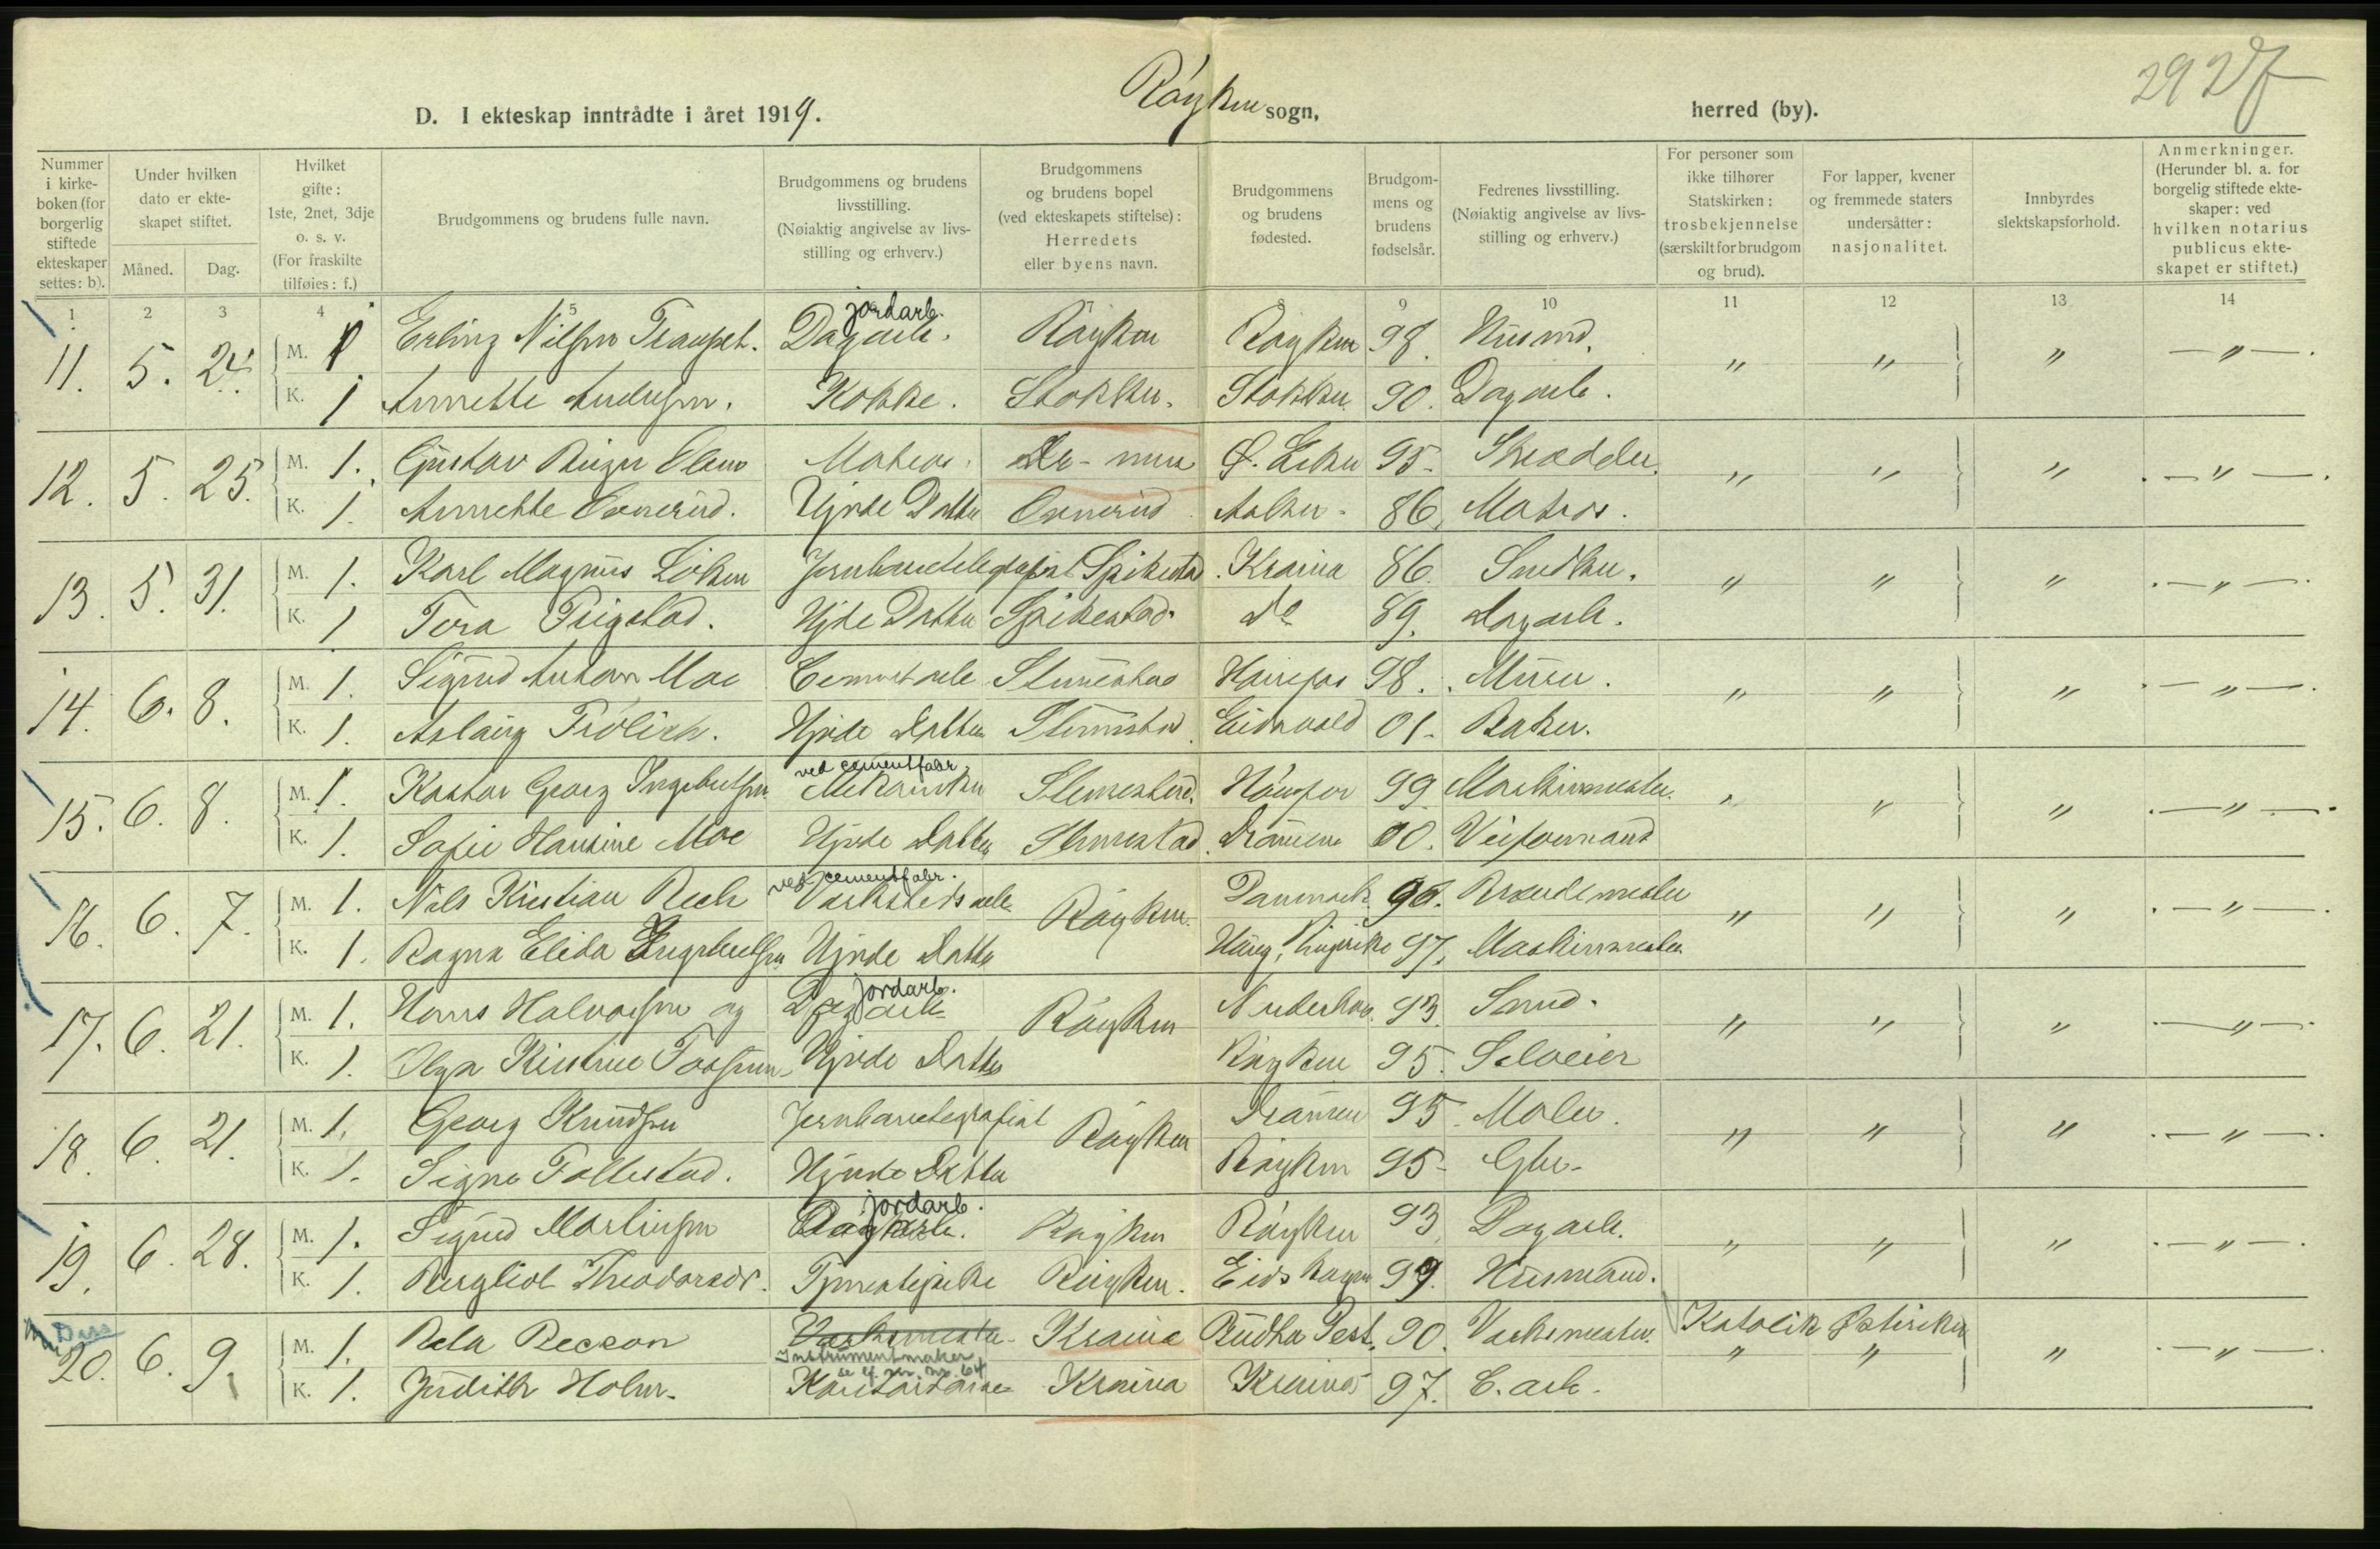 2927
D. I ekteskap inntrådte i året 1919. Røyken sogn, herred (by).
Nummer i kirkeboken (for borgerlig stiftede ekteskaper settes: b).
Under hvilken dato er ekteskapet stiftet.
Måned. Dag.
Hvilket gifte: 1ste, 2net, 3dje o. s. v. (For fraskilte tilføies: f.)
Brudgommens og brudens fulle navn.
Brudgommens og brudens livsstilling. (Nøiaktig angivelse av livsstilling og erhverv.)
Brudgommens og brudens bopel (ved ekteskapets stiftelse): Herredets eller byens navn.
Brudgommens og brudens fødested.
Brudgommens og brudens fødselsår.
Fedrenes livsstilling. (Nøiaktig angivelse av livsstilling og erhverv.)
For personer som ikke tilhører Statskirken: trosbekjennelse (særskilt for brudgom og brud).
For lapper, kvener og fremmede staters undersåtter: nasjonalitet.
Innbyrdes slektskapsforhold.
Anmerkninger. (Herunder bl. a. for borgelig stiftede ekteskaper: ved hvilken notarius publicus ekteskapet er stiftet.)
1 2 3 4 5 7 8 9 10 11 12 13 14
jordarb.
11. 5. 24. M. 1 Erling Nilsen Dagarb. Røyken Røyken 98. Husmd. " " " — " —.
K. 1 Annette Andersen. Kokke. Stokken. Stokken 90. Dagarb.
12. 5. 25. M. 1. Gustav Matros. Dr-men Ø. Eiker 95. Skrædder. " " " — " —.
K. 1. Annette Hjvde Datter 86. Matros.
13. 5. 31. M. 1. Karl Magnus Løken Jernbanetelegrafist Spikestad. Kra.nia 86. Snedker. " " " — " —.
K. 1 Tora Hjde Datter Spikestad. Do 89. Dagarb.
14. 6. 8. M. 1. Sigurd Anton Moe Cementarb Slemestad Hurum 98. Murer. " " " — " —.
K. 1. Aslaug Frölich. Hjvde Datter Slemestad. Eidsvold 01. Baker.
ved cementfabr.
15. 6. 8. M. 1. Kastor Georg Ingebretsen Mekaniker Slemestad. 99. Maskinmester. " " " — " —.
K. 1. Sofie Hansine Moe Hjvde Datter Slemestad. Drammen 00. Veiformand
ved cementfabr.
16. 6. 7. M. 1. Nils Kristian Verkstedsarb. Røyken. Danmark 96. Brændemester " " " — " —.
K. 1. Ragna Elida Ingebretsen Hjvde Datter Ringerike 97. Maskinmester
jordarb.
17. 6. 21. M. 1. Hans Halvorsen og Dagarb. Røyken Norderhov. 93. Smed. " " " — " —.
K. 1. Olga Kristine Hjvde Datter Røyken 95. Selveier
18. 6. 21. M. 1. Georg Knudsen Jernbanetelegrafist Røyken Drammen 95. Maler. " " " — " —.
K. 1. Signe Follestad. Hjvde Datter Røyken 95. Gbr.
jordarb.
19. 6. 28. M. 1. Sigurd Martinsen Dagarb. Røyken Røyken 93 Dagarb. " " " — " —.
K. 1. Bergliot Theodorsdr. Tjenestepike Røyken. Eidskogen 99. Husmand.
Diss
20. 6. 9. M. 1. Bela Recson Verksmester Kra.nia Budha Pest. 90. Verksmester. Katolik Østeriker " — " —.
Instrumentmaker
K. 1. Judith Holm. Kontordame Kra.nia Kra.nia 97. C. arb. " "